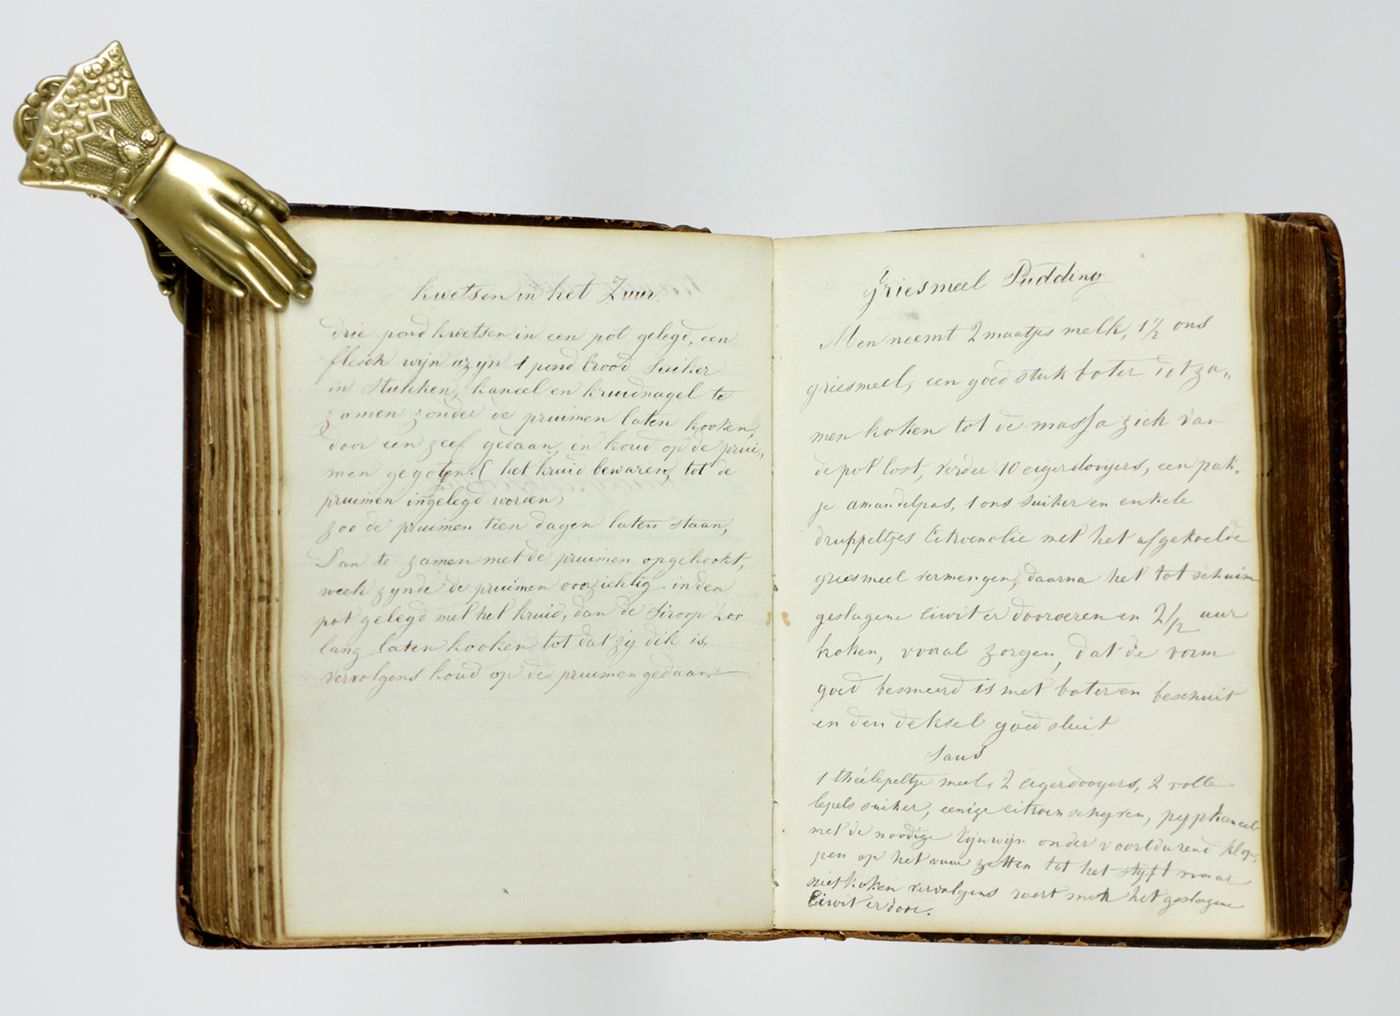 Kwetsen in het Zuur.
drie pond kwetsen in een pot gelegd, een
flesch wijn azijn 1 pond brood suiker
in stukken, kaneel en kruidnagel te
zamen zonder de pruimen laten kooken,
door een zeef gedaan, en koud op de prui„
men gegoten. ( het kruid bewaren, tot de
pruimen ingelegd worden)
zoo de pruimen tien dagen laten staan,
Dan te zamen met de pruimen opgekookt,
week zynde de pruimen voorzichtig in den
pot gelegd met het kruid, dan de Siroop zoo
lang laten kooken tot dat zy dik is,
vervolgens koud op de pruimen gedaan
Griesmeel Pudding
Men neemt 2 maatjes melk, 1 1/2 ons
griesmeel, een goed stuk boter dit za„
men koken tot de massa zich van
de pot lost, verder 10 eigerdooijers, een pak„
je amandelpas, 1 ons suiker en enkele
druppeltjes Citroenolie met het afgekoelde
griesmeel vermengen, daarna het tot schuim
geslagene Eiwit er doorroeren en 2 1/2 uur
koken, vooral zorgen, dat de vorm
goed besmeerd is met boter en beschuit
en den deksel goed sluit
Saus
1 théelepeltje meel, 2 eigerdooyers, 2 volle
lepels suiker, eenige citroen schyven, pypkaneel
met de noodige Rijnwijn onder voortdurend klop„
pen op het vuur zetten tot het styft maar
niet koken vervolgens roert men het geslagene
Eiwit er door.